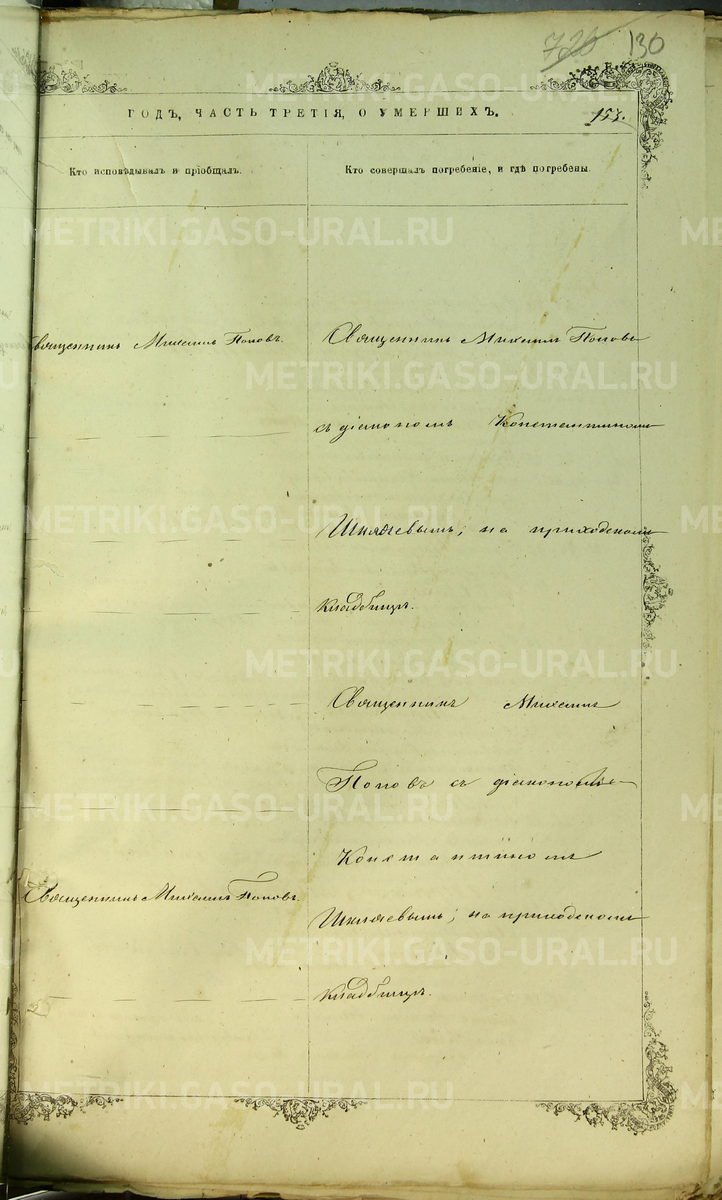 720 130
ГОДЪ, ЧАСТЬ ТРЕТІЯ, О УМЕРШИХЪ.
153.
Кто исповѣдывалъ и пріобщалъ.
Кто совершалъ погребеніе, и гдѣ погребены.
Священникъ Михаилъ Поповъ.
Священникъ Михаилъ Поповъ
съ діакономъ Константиномъ
Шкляевымъ, на приходскомъ
кладбищѣ.
Священникъ Михаилъ
Поповъ съ діакономъ
Константиномъ
Священникъ Михаилъ Поповъ.
Шкляевымъ, на приходскомъ
кладбищѣ.
METRIKI.GASO-URAL.RU